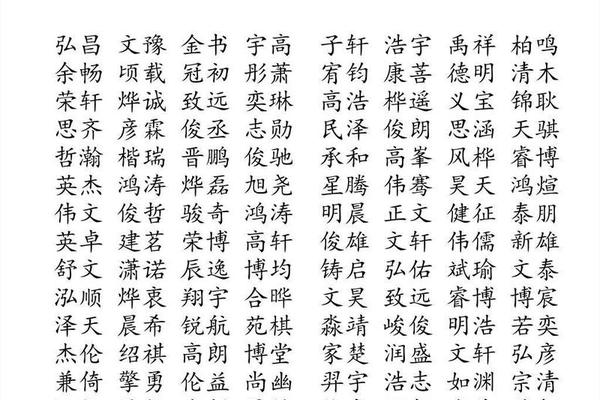 弘昌 文豫 金书 宇高 子轩 浩宇 禹祥 柏鸣
余畅 顷载 冠初 彤萧 宥钧 康善 德明 清木
荣轩 烨诚 致远 奕琳 高浩 桦遥 义宝 锦耿
思齐 彦霖 俊丞 志勋 民泽 俊朗 思涵 天骐
哲瀚 楷瑞 晋鹏 俊驰 承和 高峯 风桦 睿博
英杰 鸿涛 烨磊 旭尧 星腾 伟骞 昊天 鸿煊
伟文 俊哲 骏奇 鸿涛 明晨 正文 健征 泰朋
英卓 建茗 荣博 高轩 俊雄 文轩 伟儒 新雄
舒文 潇诺 辰逸 博均 铸启 弘佑 斌瑜 文泰
泓顺 烨衷 翔宇 合晔 文昊 致远 睿博 博宸
泽天 晨希 锐航 苑棋 淼靖 峻俊 明浩 若奕
杰伦 绍祺 高朗 博堂 家楚 润盛 文轩 弘彦
兼倚 擎勇 伦益 尚幽 羿宇 浩志 如渊 宗清